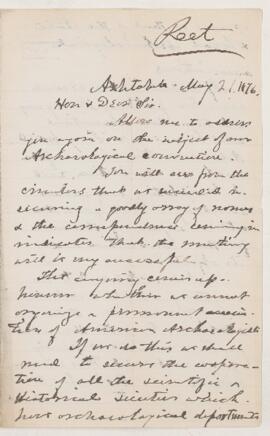 Rect
Ashtabula. May 21. 1876.
Hon & Dear Sir.
Allow me to address
you again on the subject of our
Archaeological convention.
You will see from the
circulars that we succeeded in
securing a goodly array of names
& the correspondence coming in
indicates that the meeting
will be very successful.
The enquiry comes up
whether we cannot
organize a permanent associa-
tion of American Archaeologists
If we do this we shall
need to secure the coopera-
tion of all the scientific &
Historical societies which
have archaeological departments